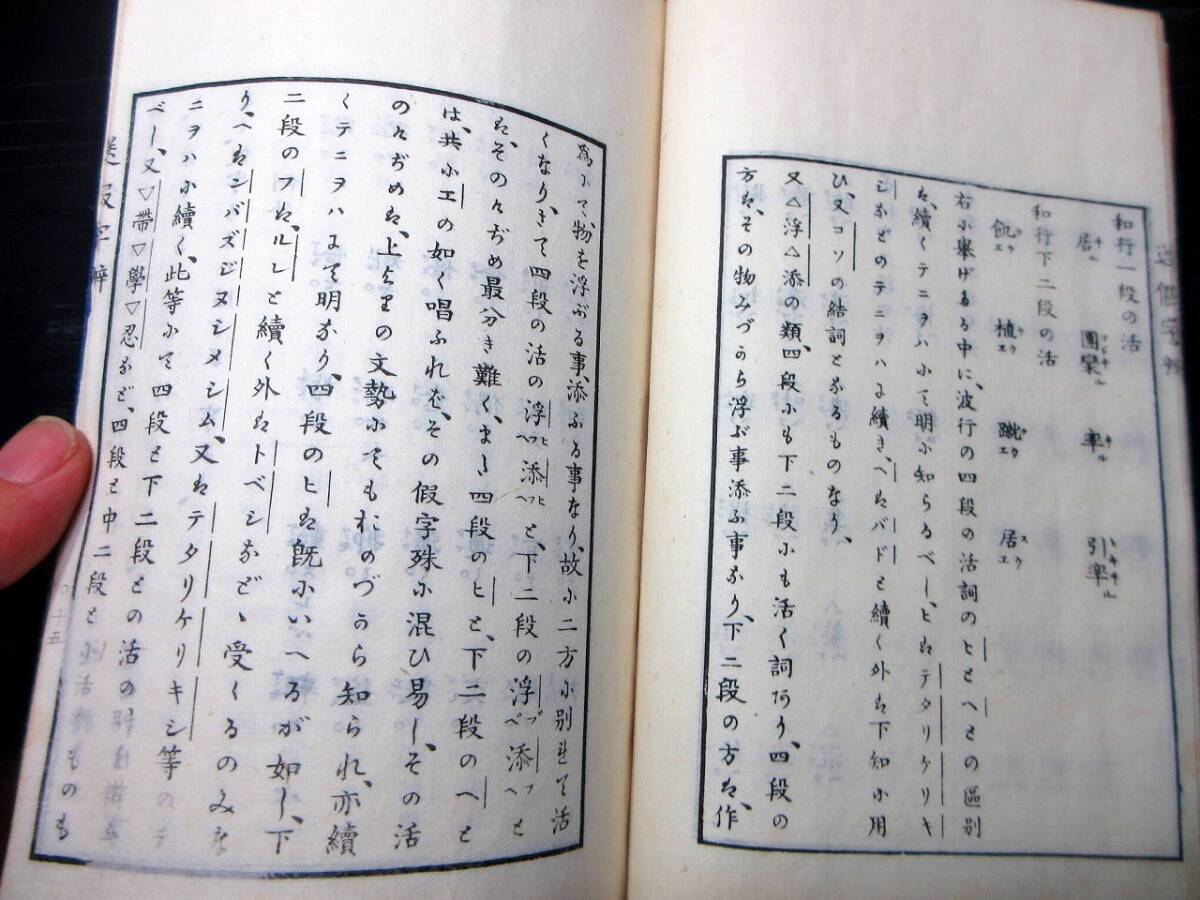 和行一段の活
居ル 團欒ル 率ル 引率ル
和行下二段の活
飢ウエ 植ウエ 蹴ウエ 居スウエ
右に擧げる中に、波行の四段の活詞のヒとへとの區別
は、續くテニヲハにて明に知らるべし、ヒはテタリケリキ
シなどのテニヲハに續き、へはバドと續く外は下知に用
ひ、又コソの結詞となるものなり、
又△浮△添の類、四段にも下二段にも活く詞あり、四段の
方は、その物みづから浮ぶ事添ふ事なり、下二段の方は、作
爲にて物を浮ぶる事、添ふる事なり、故に二方に別れて活
くなり、さて四段の活の浮添と、下二段の浮添と
は、そのけぢめ最分き難く、まして四段のヒと、下二段のへと
は、共にエの如く唱ふれど、その假字殊に混ひ易し、その活
のけぢめは、上よりの文勢にてもおのづから知られ、亦續
くテニヲハにて明なり、四段のヒは既にいへるが如し、下
二段のフは、ルレと續く外はトベシなどゝ受くるのみな
り、ヘはシバズジヌシメシム、又はテタリケリキシ等のテ
ニヲハに續く、此等にて四段と下二段との活の、
べし、又▽帶▽學▽忍など、四段と中二段と
ものも
送假字
十五